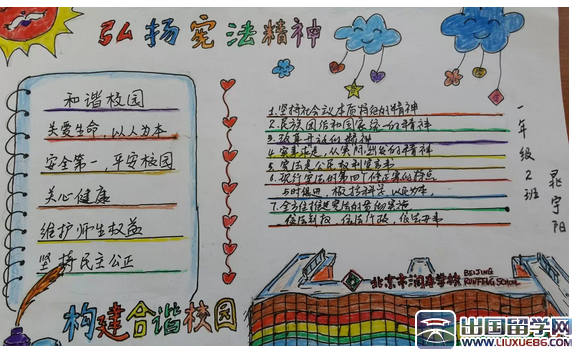 弘扬宪法精神
和谐校园
关爱生命，以人为本
安全第一，平安校园
关心健康
维护师生权益
坚持民主公正
构建合谐校园
1.坚持社会议本质特征的精神
2.民族团结和国家统一的精神
3.改革开放的精神
4.实事求是，从实际出发的精神
5.宪法是公民权利宣言书
6.现行宪法的第四个修正案的特点
与时俱进，
7.全方位推进宪法的贯彻实施
依法行政，
一年级2班
晁宇阳
北京市润丰学校
BEIJING
RUNFENG SCHOOL
出国留学网
WWW.LIUXUE86.COM